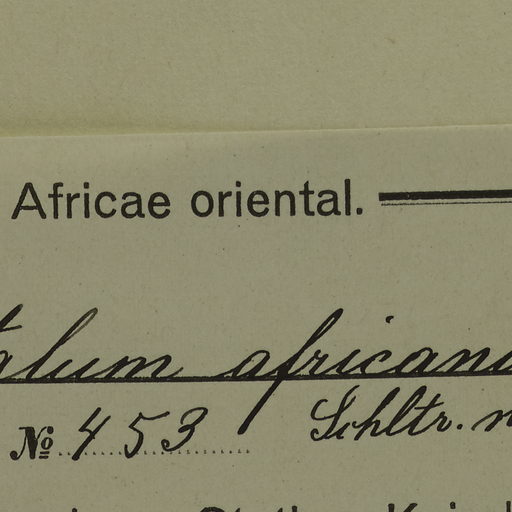 Africae oriental.
alum african
№ 453 Schltr. n